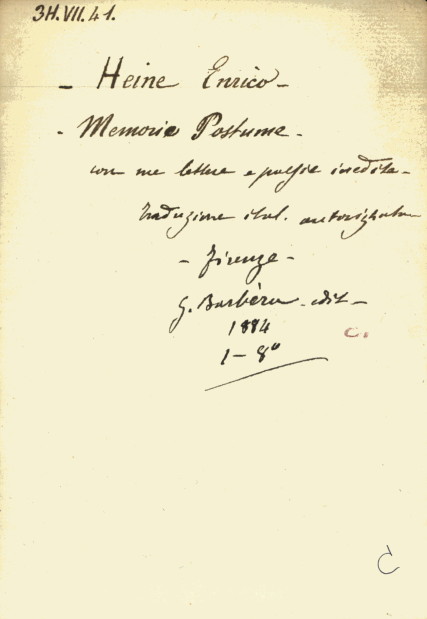 3H.VII.41.
- Heine Enrico -
- Memorie Postume -
con sue lettere e poesie inedite -
traduzione ital. autorizzata
- Firenze -
G. Barbèra - edit -
1884
C.
1 - 8º
C